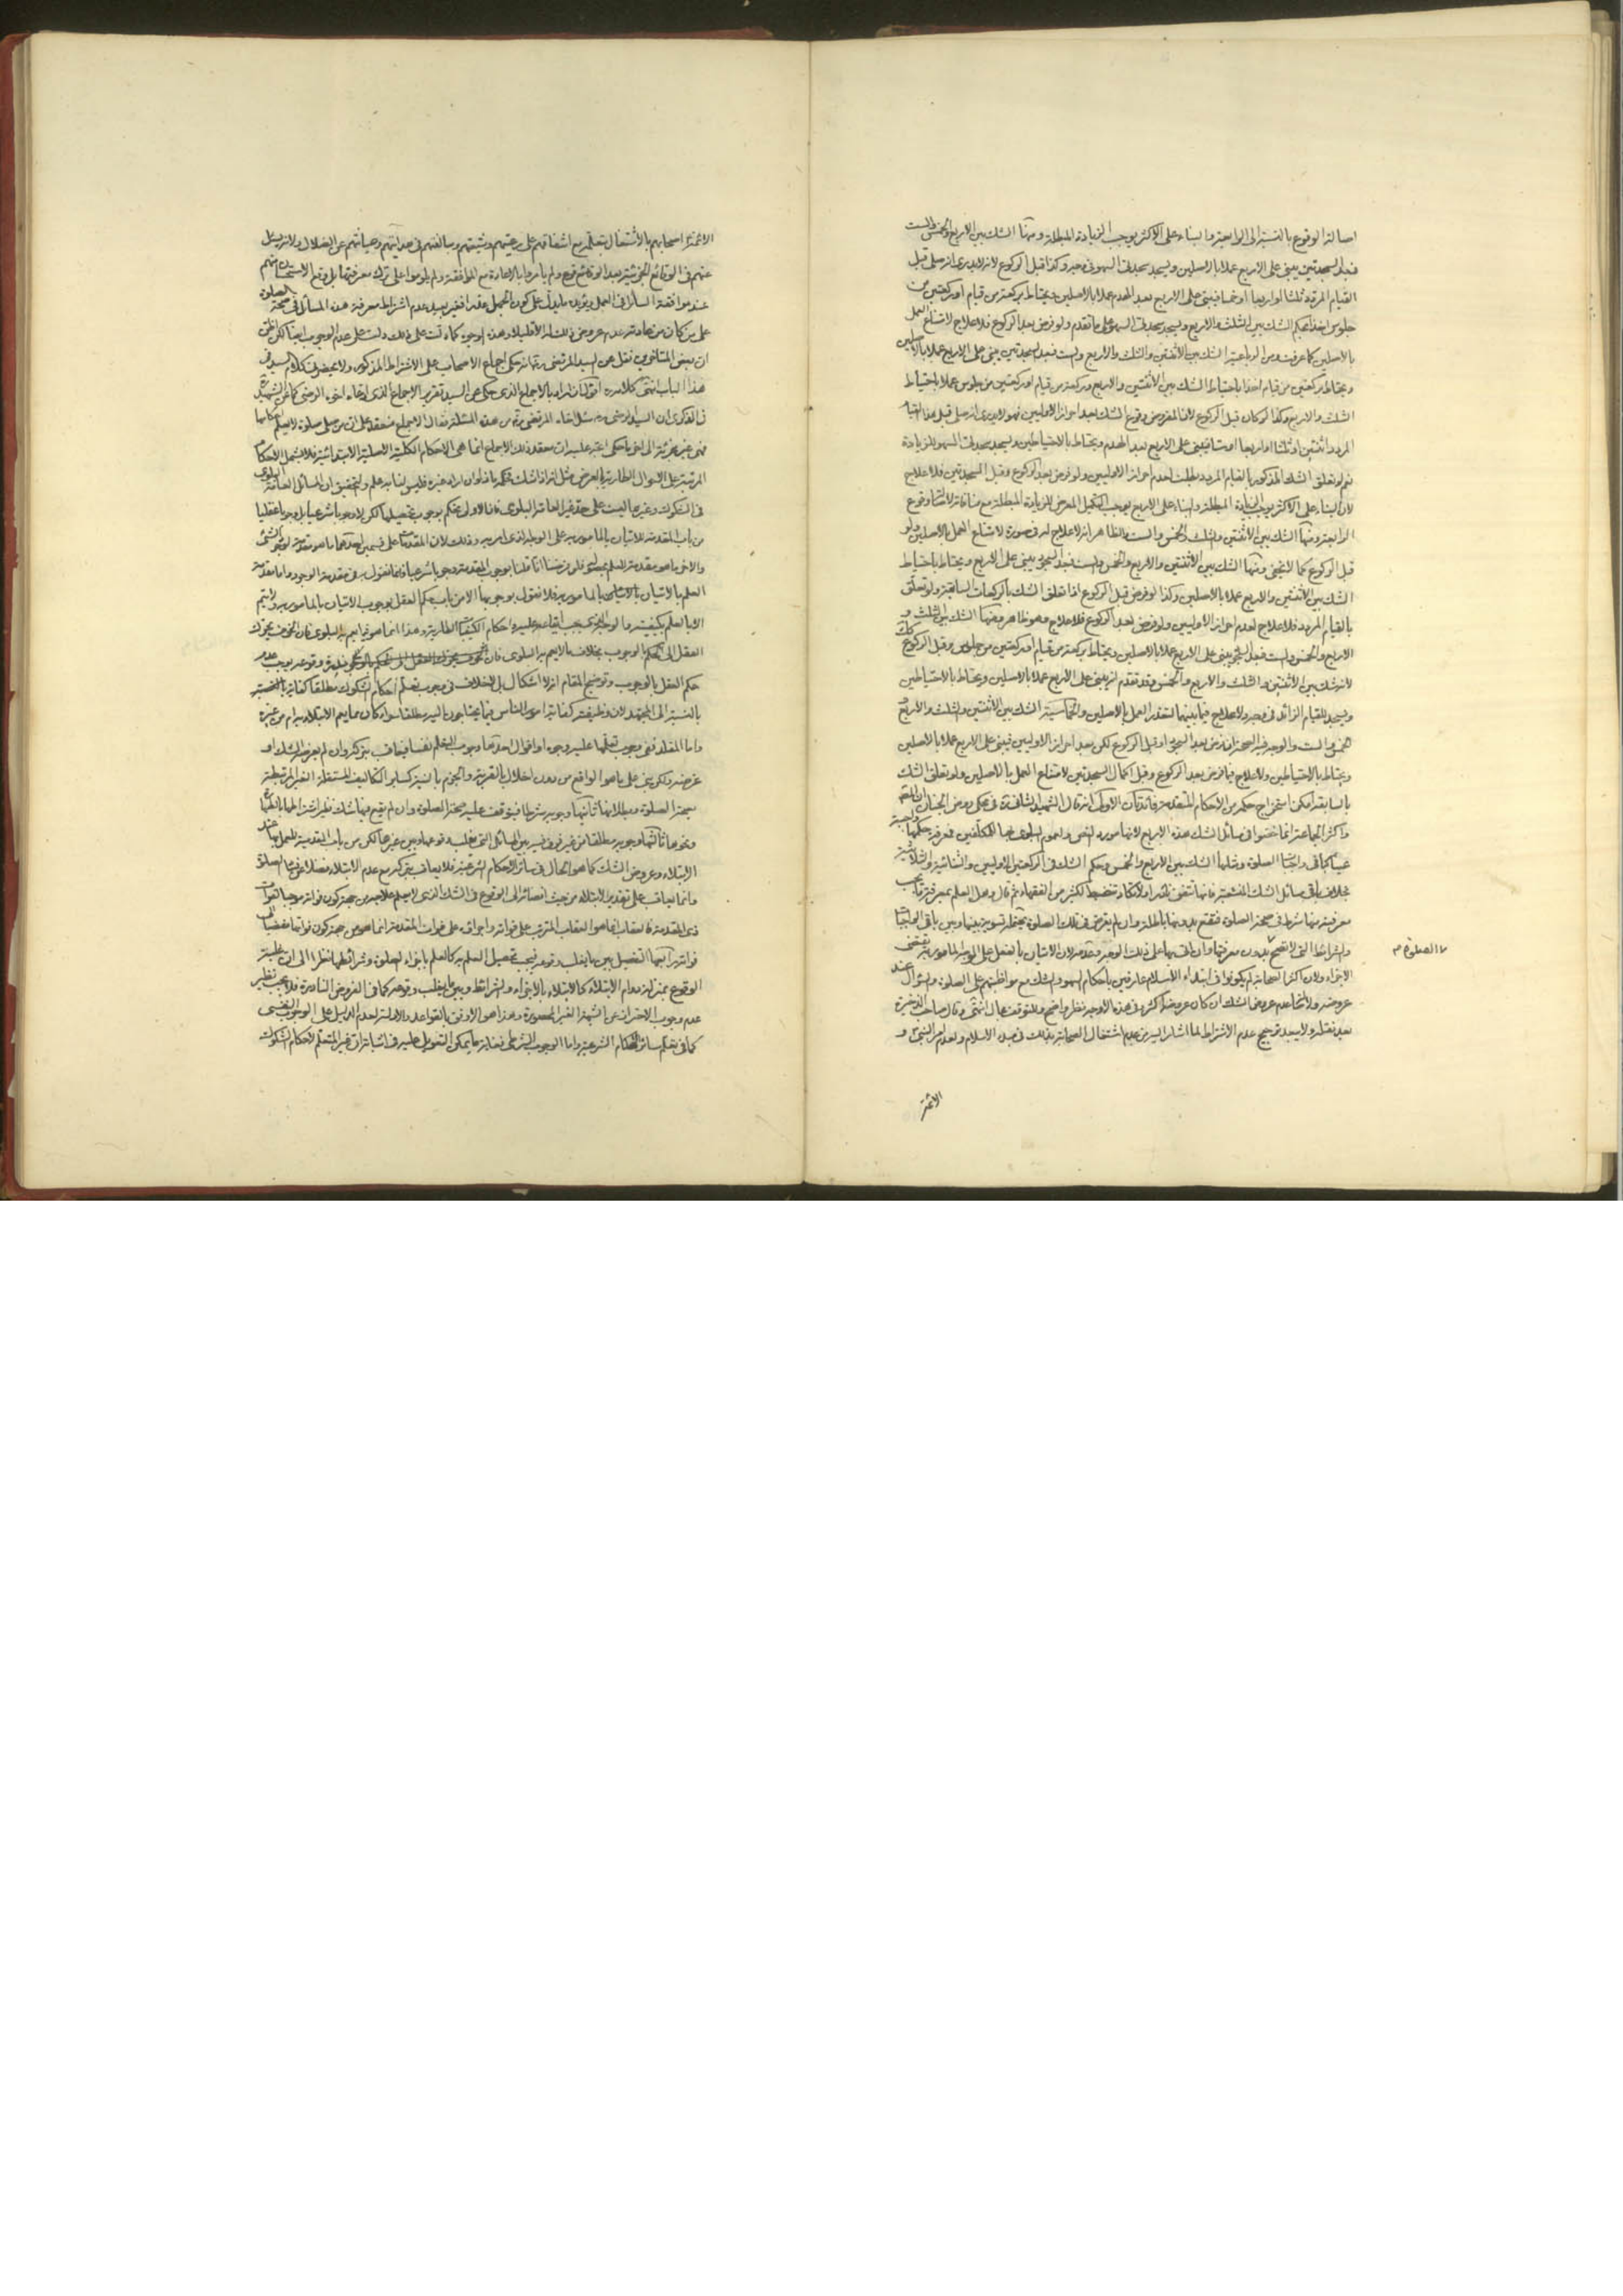 اصالة الوقوع بالنسبة الى الرابعة والبناء على الاكثر يوجب الزيادة المبطلة ومنها الشك بين الاربع والخمس والست
فبعد السجدتين يبنى على الاربع عملا بالاصلين ويسجد سجدتى السهو وكذا قبل الركوع لانه لا يدرى انه صلى قبل
القيام المردد ثلثا او اربعا او خمسا فيبنى على الاربع بعد الهدم عملا بالاصلين ويحتاط بركعة من قيام او ركعتين من
جلوس اخذا بحكم الشك بين الثلث والاربع ويسجد سجدتى السهو على ما تقدم ولو فرض بعد الركوع فلا علاج لامتناع العمل
بالاصلين كما عرفت ومن الرباعية الشك بين الاثنتين والثلث والاربع والست فبعد السجدتين يبنى على الاربع عملا بالاصلين
ويحتاط بركعتين من قيام اخذا باحتياط الشك بين الاثنتين والاربع وبركعة من قيام او ركعتين من جلوس عملا باحتياط
الشك والاربع وكذا لو كان قبل الركوع لان المفروض وقوع الشك بعد احراز الاوليين فهو لا يدرى انه صلى قبل هذا القيام
المردد اثنتين او ثلثا او اربعا او ستا فيبنى على الاربع بعد الهدم ويحتاط بالاحتياطين ويسجد سجدتى السهو للزيادة
نعم لو تعلق الشك المذكور بالقيام المردد بطلت لعدم احراز الاوليين ولو فرض بعد الركوع وقبل السجدتين فلا علاج
لان البناء على الاكثر يوجب الزيادة المبطلة والبناء على الاربع يوجب التكميل المعرض للزيادة المبطلة مع منافاته لاصالة وقوع
الرابعة ومنها الشك بين الاثنتين والثلث والخمس والست والظاهر انه لا علاج له فى صورة لامتناع العمل بالاصلين ولو
قبل الركوع كما لا يخفى ومنها الشك بين الاثنتين والاربع والخمس والست فبعد السجود يبنى على الاربع ويحتاط باحتياط
الشك بين الاثنتين والاربع عملا بالاصلين وكذا لو فرض قبل الركوع اذا تعلق الشك بالركعات السابقة ولو تعلق
بالقيام المردد فلا علاج لعدم احراز الاوليين ولو فرض بعد الركوع فلا علاج وهو ظاهر ومنها الشك بين الثلث و
الاربع والخمس والست فبعد السجود يبنى على الاربع عملا بالاصلين ويحتاط بركعة من قيام او ركعتين من جلوس وقبل الركوع كذلك
لانه شك بين الاثنتين والثلث والاربع والخمس وقد تقدم انه يبنى على الاربع عملا بالاصلين ويحتاط بالاحتياطين
ويسجد للقيام الزائد فى وجه ولا علاج فيما بينهما لتعذر العمل بالاصلين والخماسية الشك بين الاثنتين والثلث والاربع و
الخمس والست والوجه فيه الصحة ان فرض بعد السجود او قبل الركوع لكن بعد احراز الاوليين فيبنى على الاربع عملا بالاصلين
ويحتاط بالاحتياطين ولا علاج فيما فرض بعد الركوع وقبل اكمال السجدتين لامتناع العمل بالاصلين ولو تعلق الشك
بالسابقة امكن استخراج حكمه من الاحكام المتقدمة فائدتان الاولى انه قال الشهيد الثانى
واكثر الجماعة انما خصوا فى مسائل الشك هذه الاربع لانها مورد النص ولعموم البلوى بها للمكلفين فمعرفة حكمها واجبة
عينا كباقى واجبات الصلوة ومثلها الشك بين الاربع والخمس وحكم الشك فى الركعتين الاوليين والثنائية والثلاثية
بخلاف باقى مسائل الشك المتشعبة فانها تتفق نادرا ولا تكاد تنضبط لكثير من الفقهاء ثم قال وهل العلم بمعرفة ما يجب
معرفته منها شرط فى صحة الصلوة فتقع بدونها باطلة وان لم يعرض فى تلك الصلوة يحتمله تسوية بينها وبين باقى الواجبات
والشرائط التى لا تصح بدون معرفتها وان اتى بها على ذلك الوجه وعدمه لان الاتيان بالفعل على الوجه المأمور به يقتضى
الاجزاء ولان اكثر الصحابة لم يكونوا فى ابتداء الاسلام عارفين باحكام السهو والشك مع مواظبتهم على الصلوة والسؤال عند
عروضه ولاصالة عدم عروض الشك ان كان عروضه اكثريا وفى هذه الاوجه نظر واضح وللتوقف مجال انتهى وقال صاحب الذخيرة
بعد نقله ولا يبعد ترجيح عدم الاشتراط لما اشار اليه من عدم اشتغال الصحابة بذلك فى بدء الاسلام ولعدم امر النبى و
الصلوة
الائمة
الائمة اصحابهم بالاشتغال بتعلمه مع اشفاقهم على رعيتهم وشيعتهم ومبالغتهم فى هدايتهم وصيانتهم عن الضلال ولانه يسئل
عنهم فى الوقائع الجزئية بعد الوقائع فرع ولم يامروا بالاعادة مع الموافقة ولم يلوموا على ترك معرفتها بل وقع الاستحسان منهم
عند موافقة السائل فى العمل ويؤيده ما يدل على كون الجهل عذرا فغير بعيد عدم اشتراط معرفة هذه المسائل فى صحة الصلوة
على من كان من عادته عدم عروض ذلك له الا قليلا وهذه الوجوه كما دلت على ذلك دلت على عدم الوجوب ايضا لكن نقل
ان بعض المتاخرين نقل عن السيد المرتضى انه حكى اجماع الاصحاب على الاشتراط المذكور ولا يحضرنى كلام السيد فى
هذا الباب انتهى كلامه اقول كان مراده بالاجماع الذى حكى عن السيد تقرير الاجماع الذى ادعاه اخوه الرضى كما عن الشهيد
فى الذكرى ان السيد الرضى سئل اخاه المرتضى عن هذه المسئلة فقال الاجماع منعقد على ان من صلى صلوة لا يعلم احكامها
فهى غير مجزئة الى اخر ما حكى
المرتبة على الاحوال الطارية بالعرض
والتحقيق ان المسائل العامة البلوى
فى الشكوك وغيرها ليست على حد غير العامة البلوى فان الاولى نحكم بوجوب تحصيلها لكن لا وجوبا شرعيا بل وجوبا عقليا
من باب المقدمة للاتيان بالمامور به على الوجه الذى امر به وذلك لان المقدمات على قسمين احدهما ما هو مقدمة لوجود الشئ
والاخر ما هو مقدمة للعلم
العلم بالاتيان بالمامور به فلا نقول بوجوبها الا من باب حكم العقل بوجوب الاتيان بالمامور به ولا يتم
الا بالعلم بكيفيته
العقل الى الحكم بالوجوب بخلاف ما لا يعم به البلوى فان
حكم العقل بالوجوب وتوضيح المقام انه لا اشكال بل لا خلاف فى وجوب تعلم احكام الشكوك مطلقا كفاية
بالنسبة الى المجتهد لان وظيفته كفاية امور الناس فيما يحتاجون اليه مطلقا سواء كان مما يعم الابتلاء به ام من غيره
واما المقلد ففى وجوب تعلمها عليه وجوه او اقوال احدها وجوب التعلم نفسا فيعاقب بتركه وان لم يعرضه الشك او
عرضه ولكن بنى على ما هو الواقع من دون اخلال بالقربة والجزم بالنية كسائر التكاليف المستقلة الغير المرتبطة
بصحة الصلوة وبطلانها ثانيها وجوبه شرطا فيتوقف عليه صحة الصلوة وان لم يقع فيها شك نظير اشتراطها بالطهارة
ونحوها ثالثها وجوبه مطلقا من غير فرق فيه بين المسائل التى يغلب وقوعها وبين غيرها لكن من باب المقدمة للعمل بها عند
الابتلاء وعروض الشك كما هو الحال فى سائر الاحكام الشرعية فلا يعاقب بتركه مع عدم الابتلاء فضلا عن الصلوة
وانما يعاقب على تقدير الابتلاء من حيث افضائه الى الوقوع فى الشك الذى لا يعلم علاجه من جهة كون فواته موجبا لفوات
ذى المقدمة فالعقاب انما هو العقاب المترتب على فواته
فواته رابعها التفصيل بين ما يغلب وقوعه فيجب تحصيل العلم به كالعلم باجزاء الصلوة وشرائطها نظرا الى ان غلبة
الوقوع بمنزلة دوام الابتلاء كالابتلاء بالاجزاء والشرائط وبين ما لا يغلب وقوعه كما فى الفروض النادرة فلا يجب نظير
عدم وجوب الاحتراز عن الشبهة الغير المحصورة وهذا هو الاوفق بالقواعد والادلة لعدم الدليل على الوجوب النفسى
كما فى تعلم سائر الاحكام الشرعية واما الوجوب الشرطى فغاية ما يمكن التعويل عليه فى اثباته ان غير المتعلم لاحكام الشكوك